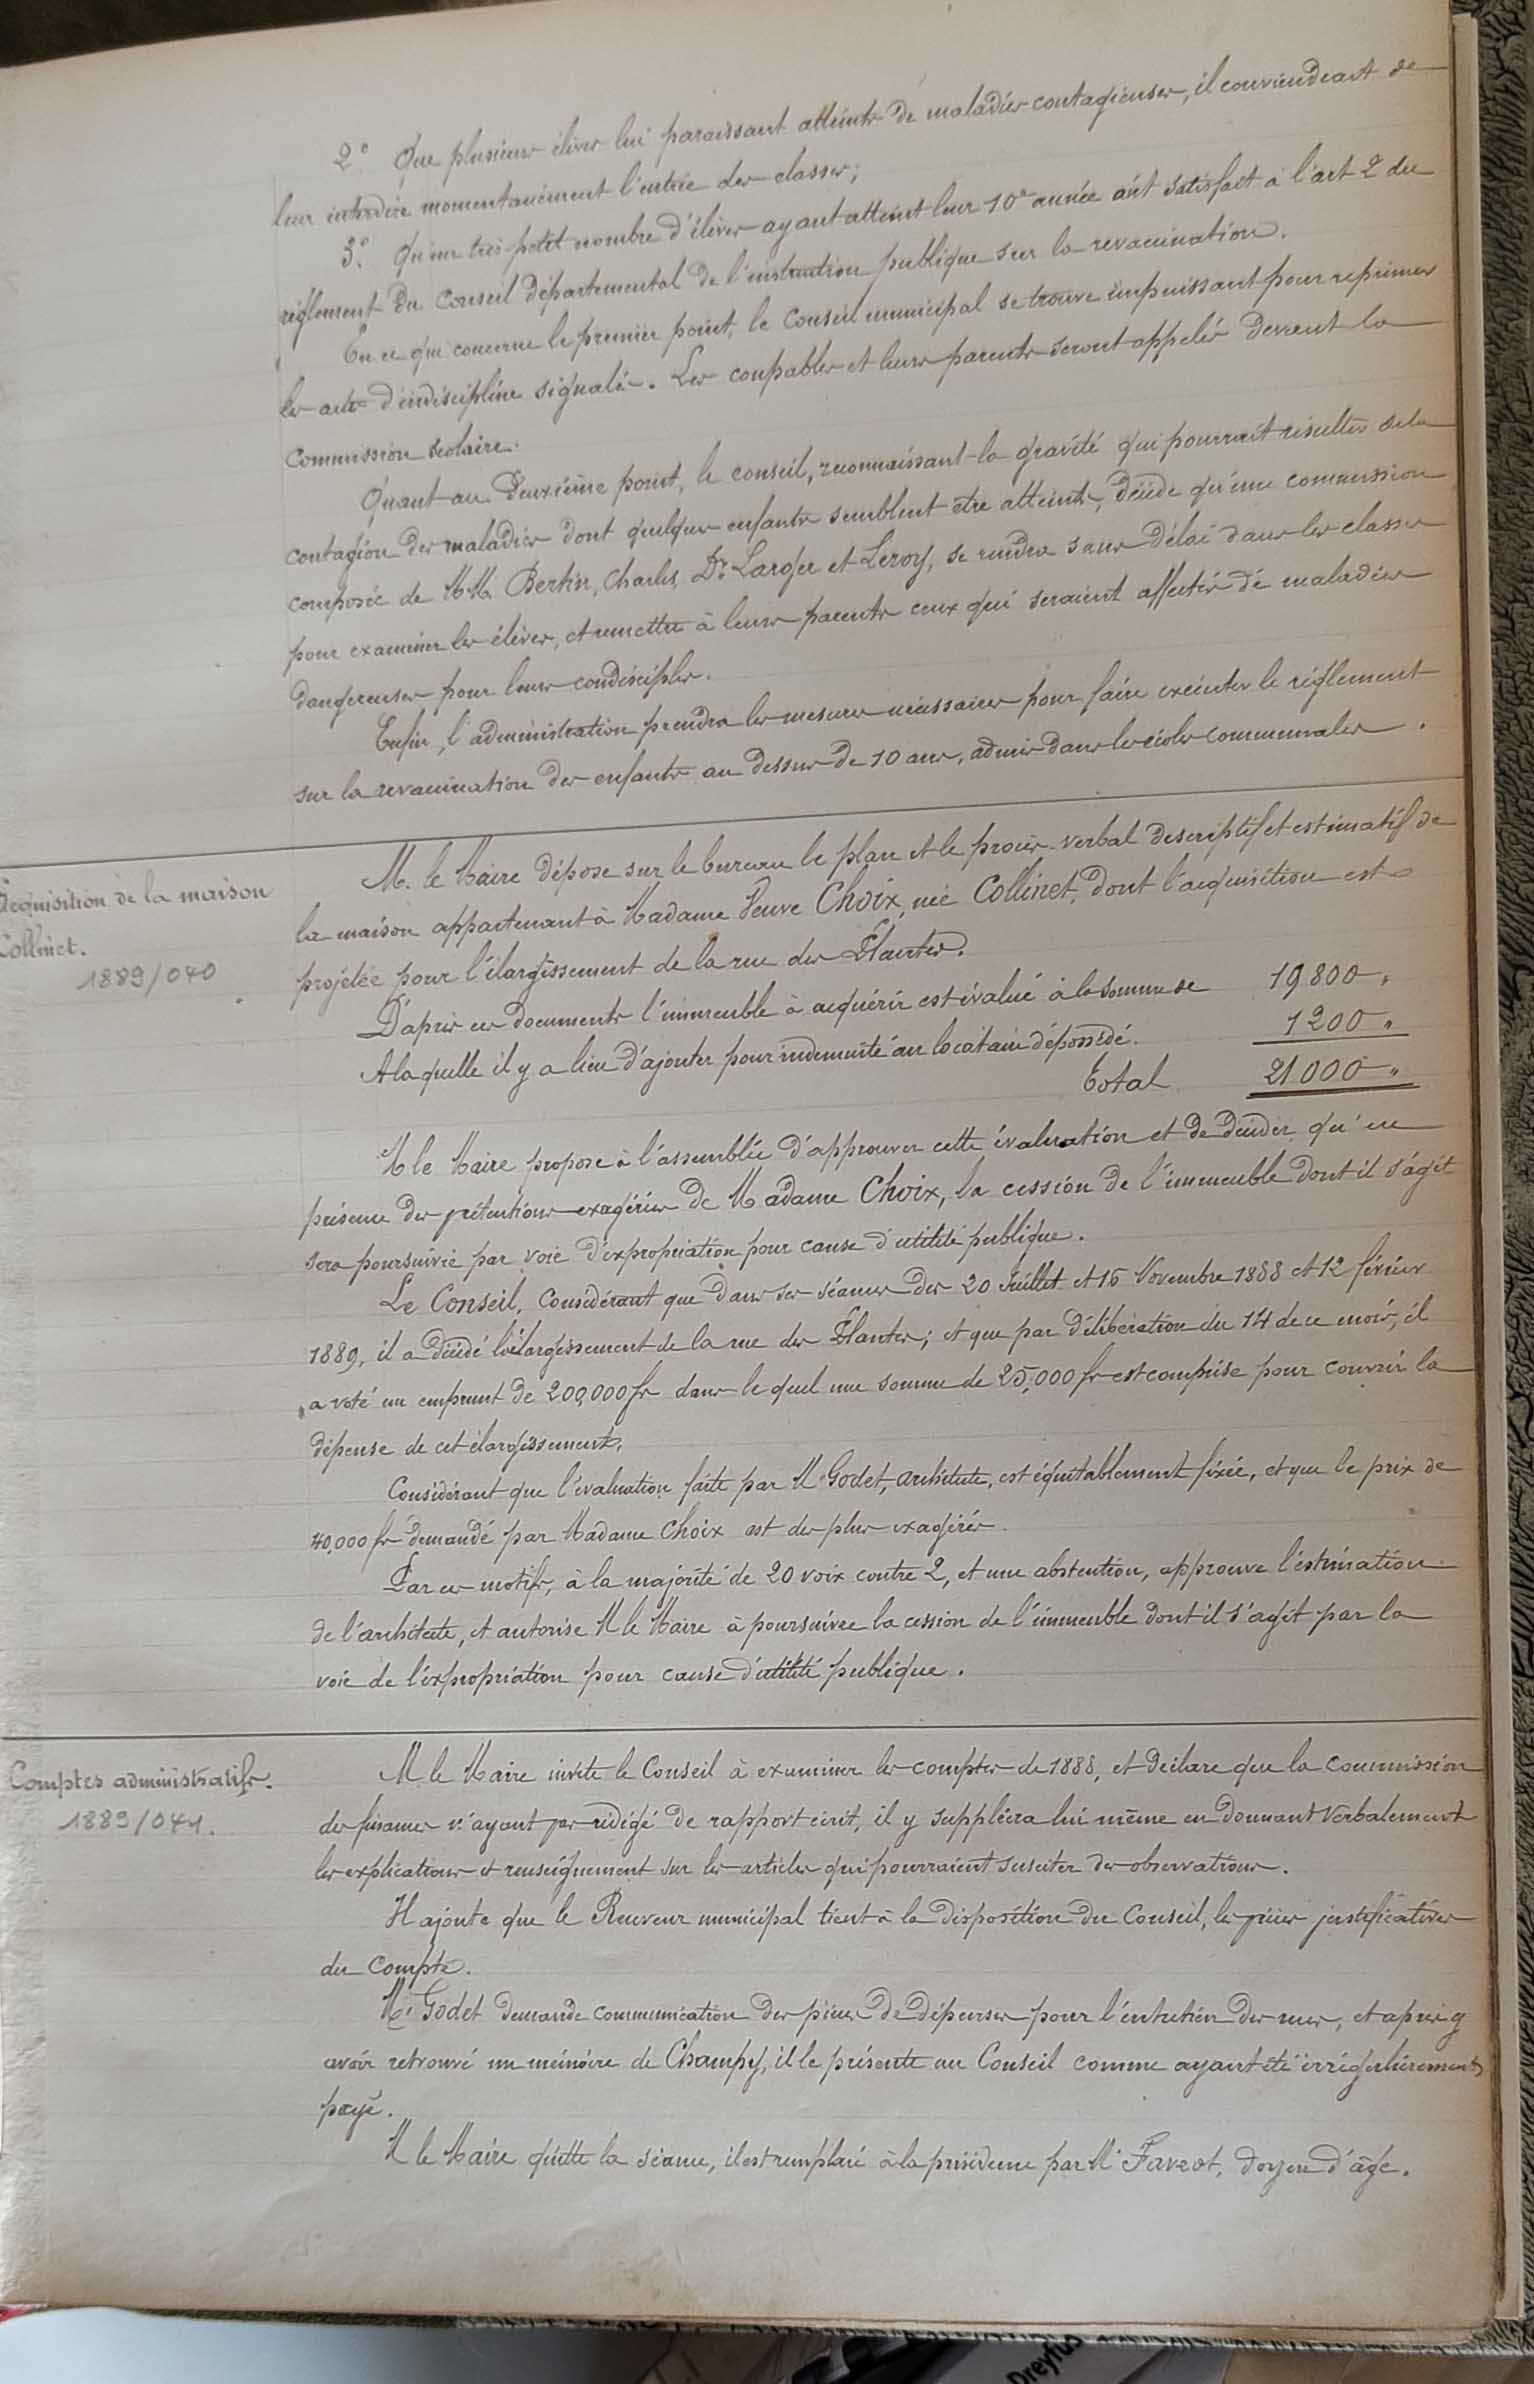 2° Que plusieurs élèves lui paraissant atteints de maladies contagieuses, il conviendrait de
leur interdire momentanément l'entrée des classes;
3° Qu'un très petit nombre d'élèves ayant atteint leur 10e année ait satisfait à l'art 2 du
règlement du Conseil départemental de l'instruction publique sur la revaccination.
En ce qui concerne le premier point, le Conseil municipal se trouve impuissant pour réprimer
les actes d'indiscipline signalés. Les coupables et leurs parents seront appelés devant la
Commission scolaire.
Quant au deuxième point, le conseil, reconnaissant la gravité qui pourrait résulter de la
contagion des maladies dont quelques enfants semblent être atteints, décide qu'une commission
composée de MM. Bertin, Charles, Dr Larger et Leroy, se rendra sans délai dans les classes
pour examiner les élèves, et remettre à leurs parents ceux qui seraient affectés de maladies
dangereuses pour leurs condisciples.
Enfin, l'administration prendra les mesures nécessaires pour faire exécuter le règlement
sur la revaccination des enfants au dessus de 10 ans, admis dans les écoles communales.
Acquisition de la maison
Collinet.
1889/040
M. le Maire dépose sur le bureau le plan et le procès-verbal descriptif et estimatif de
la maison appartenant à Madame Veuve Choix, née Collinet, dont l'acquisition est
projetée pour l'élargissement de la rue des Plantes.
D'après ces documents l'immeuble à acquérir est évalué à la somme de 19800 "
A laquelle il y a lieu d'ajouter pour indemnité au locataire dépossédé. 1200 "
Total 21000 "
M le Maire propose à l'assemblée d'approuver cette évaluation et de décider qu'en
présence des prétentions exagérées de Madame Choix, la cession de l'immeuble dont il s'agit
sera poursuivie par voie d'expropriation pour cause d'utilité publique.
Le Conseil, Considérant que dans ses séances des 20 Juillet et 16 Novembre 1888 et 12 février
1889, il a décidé l'élargissement de la rue des Plantes; et que par délibération du 14 de ce mois, il
a voté un emprunt de 200,000 fr dans lequel une somme de 25,000 fr est comprise pour couvrir la
dépense de cet élargissement.
Considérant que l'évaluation faite par Mr Godet, architecte, est équitablement fixée, et que le prix de
40,000 fr demandé par Madame Choix est des plus exagérés.
Par ces motifs, à la majorité de 20 voix contre 2, et une abstention, approuve l'estimation
de l'architecte, et autorise M le Maire à poursuivre la cession de l'immeuble dont il s'agit par la
voie de l'expropriation pour cause d'utilité publique.
Comptes administratifs.
1889/041.
M le Maire invite le Conseil à examiner les comptes de 1888, et déclare que la commission
des finances n'ayant pas rédigé de rapport écrit, il y suppléera lui même en donnant verbalement
les explications et renseignement sur les articles qui pourraient susciter des observations.
Il ajoute que le Receveur municipal tient à la disposition du Conseil, les pièces justificatives
du Compte.
Mr Godet demande communication des pièces de dépenses pour l'entretien des rues, et après y
avoir retrouvé un mémoire de Champy, il le présente au Conseil comme ayant été irrégulièrement
payé.
M le Maire quitte la séance, il est remplacé à la présidence par Mr Favrot, doyen d'âge.
Dreyfus